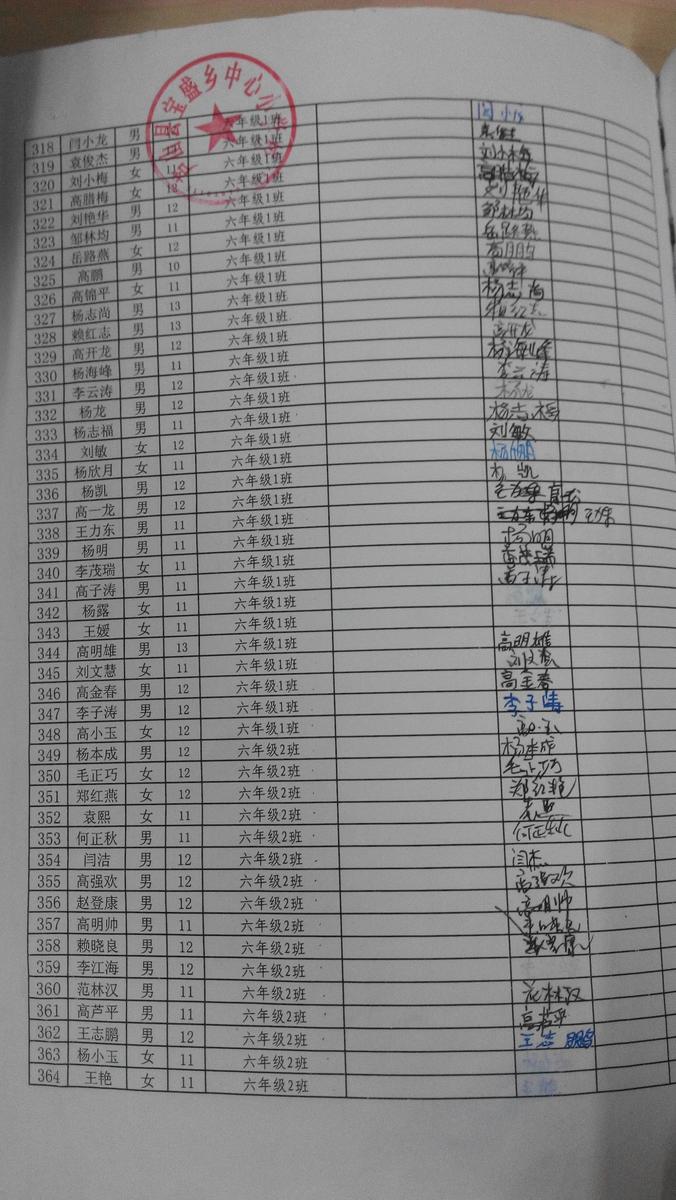 宝盛乡中心小
318 闫小龙 男 六年级1班 闫小龙
319 袁俊杰 男 六年级1班
320 刘小梅 女 11 六年级1班 刘小梅
321 高腊梅 女 12 六年级1班 高腊梅
322 刘艳华 男 12 六年级1班 刘艳华
323 邹林均 男 11 六年级1班 邹林均
324 岳路燕 女 12 六年级1班 岳路燕
325 高鹏 男 10 六年级1班 高鹏
326 高锦平 女 11 六年级1班
327 杨志尚 男 13 六年级1班 杨志尚
328 赖红志 男 13 六年级1班
329 高开龙 男 12 六年级1班 高开龙
330 杨海峰 男 11 六年级1班 杨海峰
331 李云涛 男 12 六年级1班 李云涛
332 杨龙 男 12 六年级1班 杨龙
333 杨志福 男 11 六年级1班 杨志福
334 刘敏 女 12 六年级1班 刘敏
335 杨欣月 女 11 六年级1班
336 杨凯 男 12 六年级1班 杨凯
337 高一龙 男 12 六年级1班
338 王力东 男 11 六年级1班
339 杨明 男 11 六年级1班 杨明
340 李茂瑞 女 11 六年级1班
341 高子涛 男 11 六年级1班 高子涛
342 杨露 女 11 六年级1班
343 王媛 女 11 六年级1班
344 高明雄 男 13 六年级1班 高明雄
345 刘文慧 女 11 六年级1班 刘文慧
346 高金春 男 12 六年级1班 高金春
347 李子涛 男 12 六年级1班 李子涛
348 高小玉 女 12 六年级1班
349 杨本成 男 12 六年级2班 杨本成
350 毛正巧 女 12 六年级2班 毛正巧
351 郑红燕 女 12 六年级2班 郑红艳
352 袁熙 女 11 六年级2班
353 何正秋 男 11 六年级2班 何正秋
354 闫洁 男 12 六年级2班 闫杰
355 高强欢 男 12 六年级2班 高强欢
356 赵登康 男 12 六年级2班 高明帅
357 高明帅 男 11 六年级2班
358 赖晓良 男 12 六年级2班
359 李江海 男 12 六年级2班
360 范林汉 男 11 六年级2班 范林汉
361 高芦平 男 11 六年级2班 高芦平
362 王志鹏 男 12 六年级2班 王志鹏
363 杨小玉 女 11 六年级2班
364 王艳 女 11 六年级2班 王艳